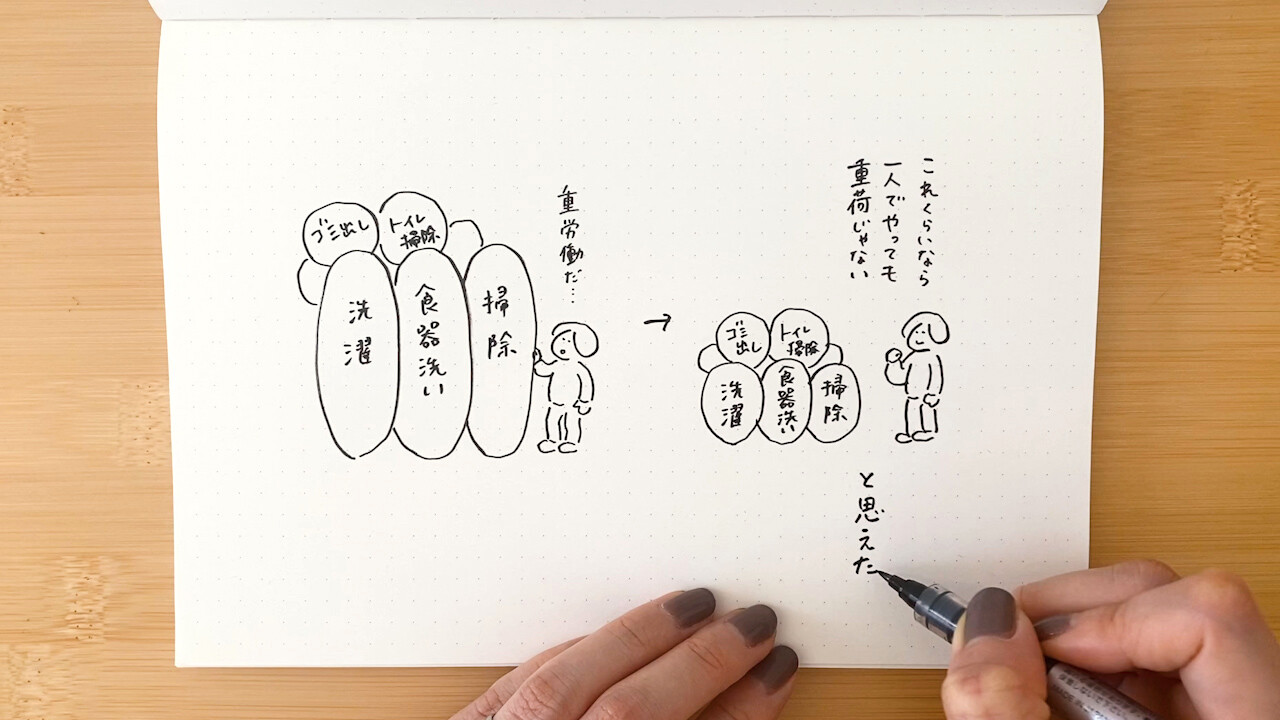 ゴミ出し
トイレ
掃除
洗濯
食器洗い
掃除
重労働だ…
→
ゴミ
出し
トイレ
掃除
洗濯
食器洗い
掃除
これくらいなら
一人でやっても
重荷じゃない
と思えた